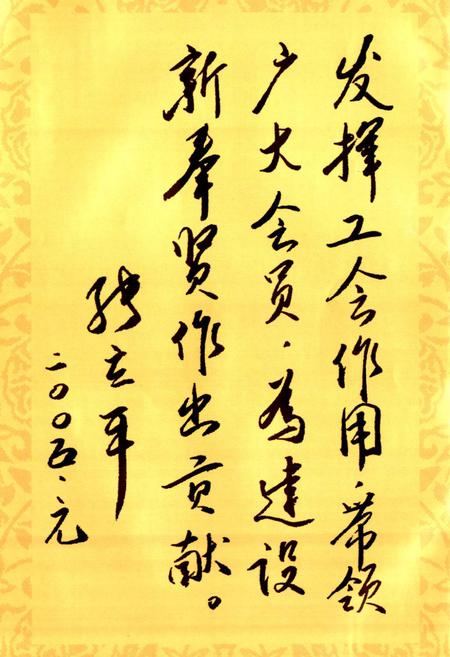 发挥工会作用、带领
广大会员、为建设
新奉贤作出贡献。
张立平
二〇〇五、元